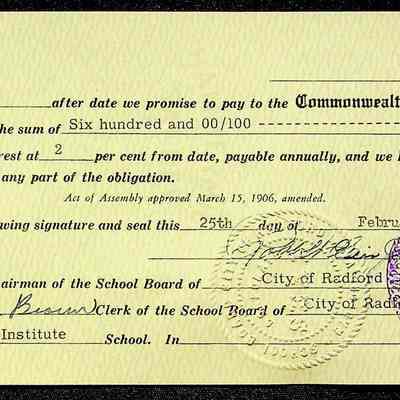 after date we promise to pay to the Commonwealt
he sum of Six hundred and 00/100 -----------------
rest at 2 per cent from date, payable annually, and we
any part of the obligation.
Act of Assembly approved March 15, 1906, amended.
wing signature and seal this 25th day of Febru
airman of the School Board of City of Radford
Clerk of the School Board of City of Rad
Institute School. In